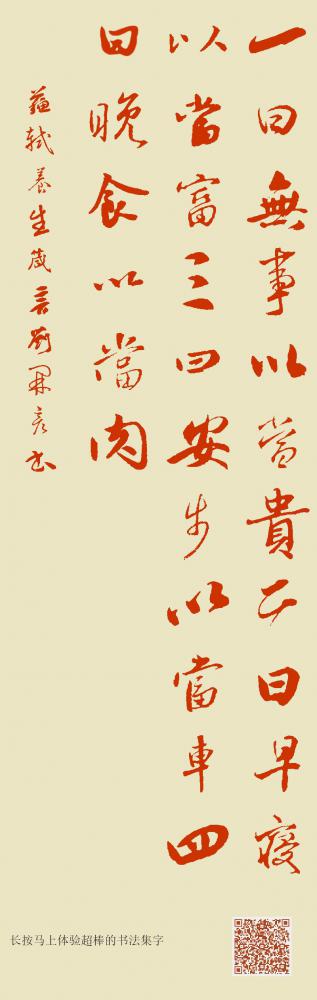 一曰無事以當貴二曰早寢
以當富三曰安步以當車四
曰晚食以當肉
蘇軾養生箴言劉開彦书
长按马上体验超棒的书法集字